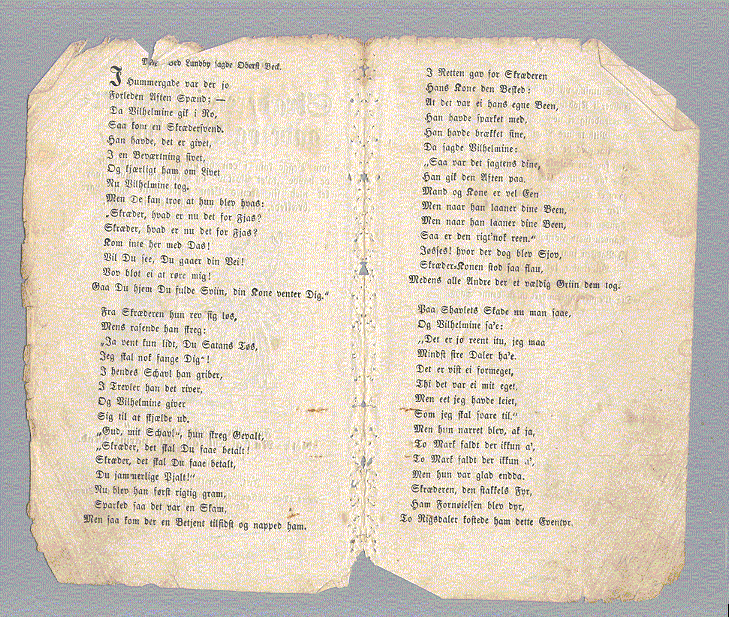 ved Lundby sagde Oberst Beck.
I Hummergade var der jo
Forleden Aften Spænd; —
Da Vilhelmine gik i Ro,
Saa kom en Skrædersvend.
Han havde, det er givet,
I en Beværtning sivet,
Og kjærligt ham om Livet
Nu Vilhelmine tog.
Men De kan troe at hun blev hvas:
„Skræder, hvad er nu det for Fjas?
Skræder, hvad er nu det for Fjas?
Kom inte her med Dads!
Vil Du see, Du gaaer din Vei!
Vov blot ei at røre mig!
Gaa Du hjem Du fulde Sviin, din Kone venter Dig.“
Fra Skræderen hun rev sig løs,
Mens rasende han skreg:
„Ja vent kun lidt, Du Satans Tøs,
Jeg skal nok fange Dig“!
I hendes Schavl han griber,
I Trevler han det river,
Og Vilhelmine giver
Sig til at skjælde ud.
„Gud, mit Schavl“, hun skreg Gevalt,
„Skræder, det skal Du faae betalt!
Skræder, det skal Du faae betalt,
Du jammerlige Pjalt!“
Nu blev han først rigtig gram,
Sparked saa det var en Skam,
Men saa kom der en Betjent tilsidst og napped ham.
I Retten gav for Skræderen
Hans Kone den Besked:
At det var ei hans egne Been,
Han havde sparket med,
Han havde brækket sine,
Da sagde Vilhelmine:
„Saa var det sagtens dine,
Han gik den Aften paa.
Mand og Kone er vel Een
Men naar han laaner dine Been,
Men naar han laaner dine Been,
Saa er den rigt'nok reen.“
Jøsses! hvor der blev Sjov,
Skræder-Konen stod saa flau,
Medens alle Andre der et vældig Griin dem tog.
Paa Shavlets Skade nu man saae,
Og Vilhelmine sa'e:
„Det er jo reent itu, jeg maa
Mindst fire Daler ha'e.
Det er vist ei formeget,
Thi det var ei mit eget,
Men eet jeg havde leiet,
Som jeg skal svare til.“
Men hun narret blev, ak ja,
To Mark faldt der ikkun a',
To Mark faldt der ikkun a',
Men hun var glad endda.
Skræderen, den stakkels Fyr,
Ham Fornøielsen blev dyr,
To Rigsdaler kostede ham dette Eventyr.